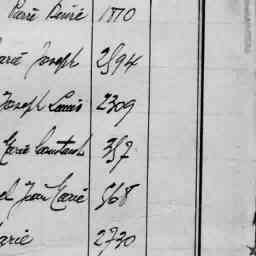 Pierre Désiré 1810
Marie Joseph 2594
Joseph Louis 2309
Marie Constant 357
Jean Marie 568
Marie 2770